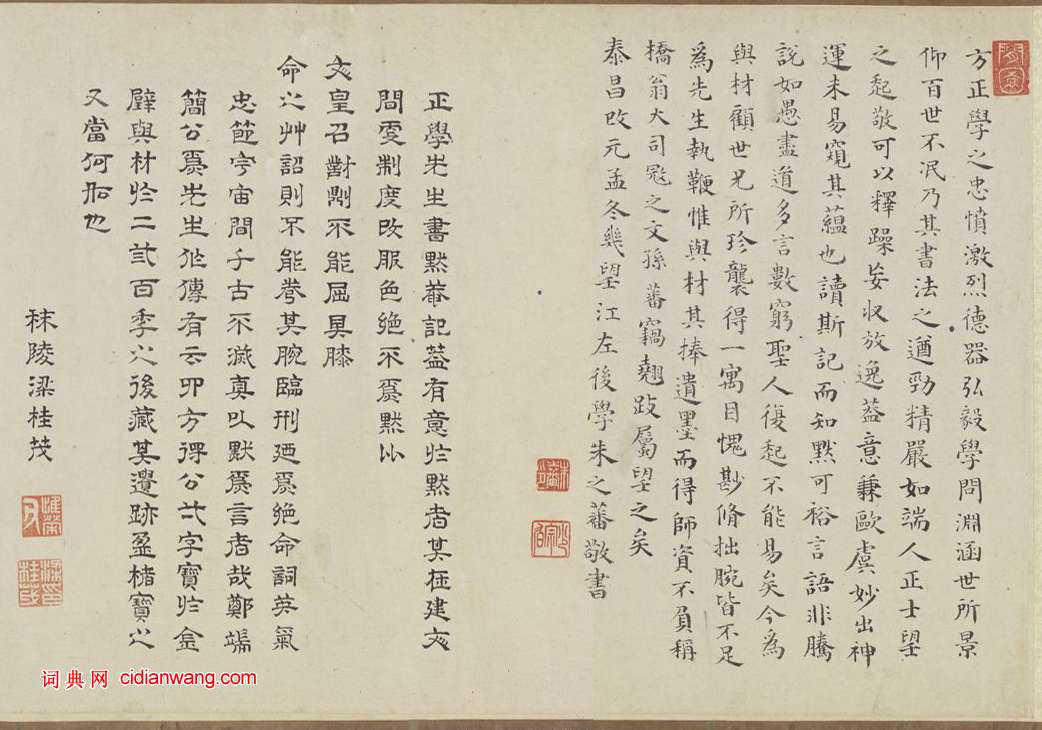 方正學之忠憤激烈德器弘毅學問淵涵世所景
仰百世不泯乃其書法之遒勁精嚴如端人正士望
之起敬可以釋躁妄收放逸蓋意兼歐虞妙出神
運未易窺其蘊也讀斯記而知默可裕言語非騰
說如愚盡道多言數窮聖人復起不能易矣今為
與材顧世兄所珍襲得一寓目愧尠脩拙腕皆不足
為先生執鞭惟與材其捧遺墨而得師資不負稱
橋翁大司寇之文孫蕃竊翹跂屬望之矣
泰昌改元孟冬幾望江左後學朱之蕃敬書
正學先生書默菴記蓋有意於默者其在建文
間更制度改服色絕不為默比
文皇召對則不能屈其膝
命之艸詔則不能䄅其腕臨刑廼為絕命詞英氣
忠節宇宙間千古不滅真以默為言者哉鄭端
簡公為先生作傳有云卯方得公片字寶於金
璧與材於二百季之後藏其遺跡盈楮寶之
又當何如也
秣陵梁桂茂
词典网 cidianwang.com